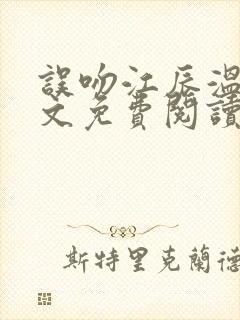 誤吻江辰溫
文免費閱讀
斯特里克蘭德